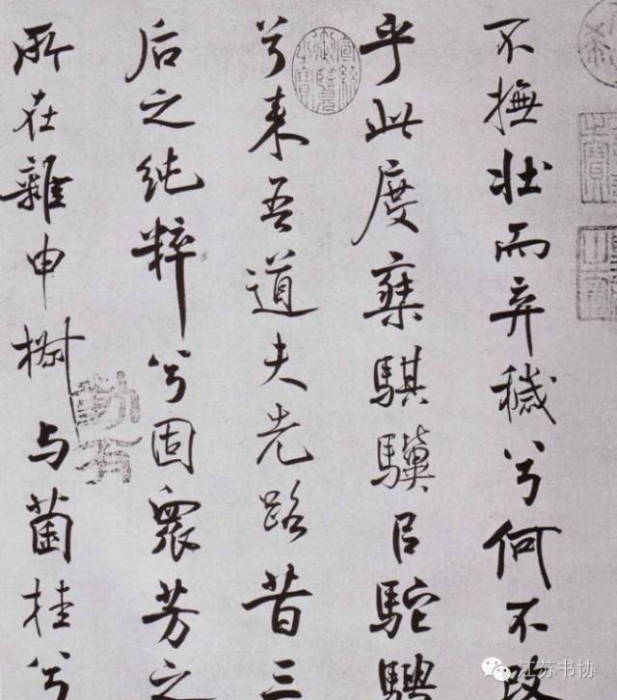 不撫壯而弃穢兮何不改
乎此度椉騏驥㠯駝騁
兮来吾道夫先路昔三
后之純粹兮固衆芳之
所在雜申椒与菌桂兮
江苏书协